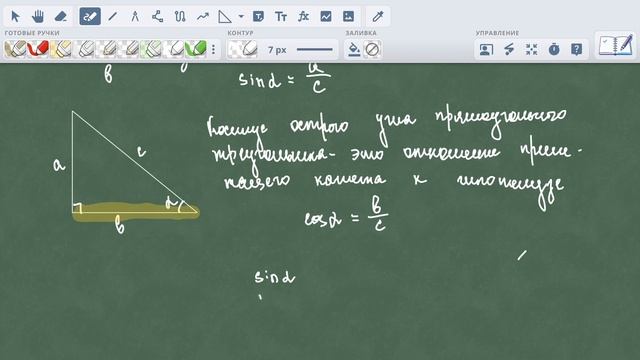 ГОТОВЫЕ РУЧКИ
КОНТУР
ЗАЛИВКА
УПРАВЛЕНИЕ
Tт
fx
7 px
в
sin α = a/c
Косинус острого угла прямоугольного
треугольника - это отношение приле-
жащего катета к гипотенузе
cos α = в/с
a
c
α
в
sin α